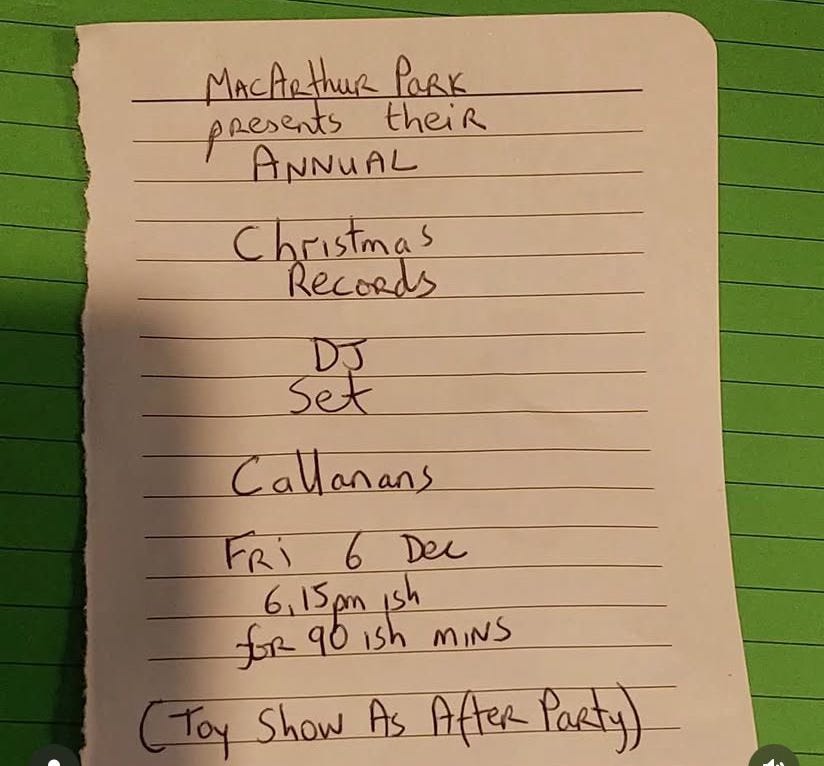 MacArthur Park
presents their
Annual
Christmas
Records
DJ
Set
Callanans
Fri 6 Dec
6.15pm ish
for 90 ish mins
(Toy Show As After Party)